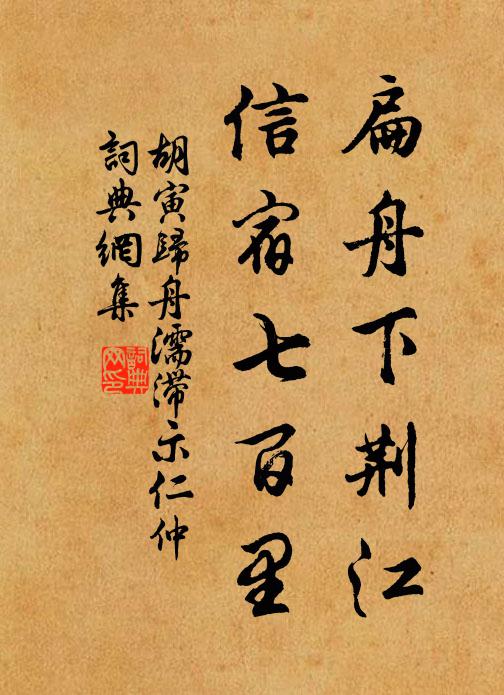 扁舟下荆江
信宿七百里
胡寅歸舟濡滯示仁仲
詞典網集
詞典網印